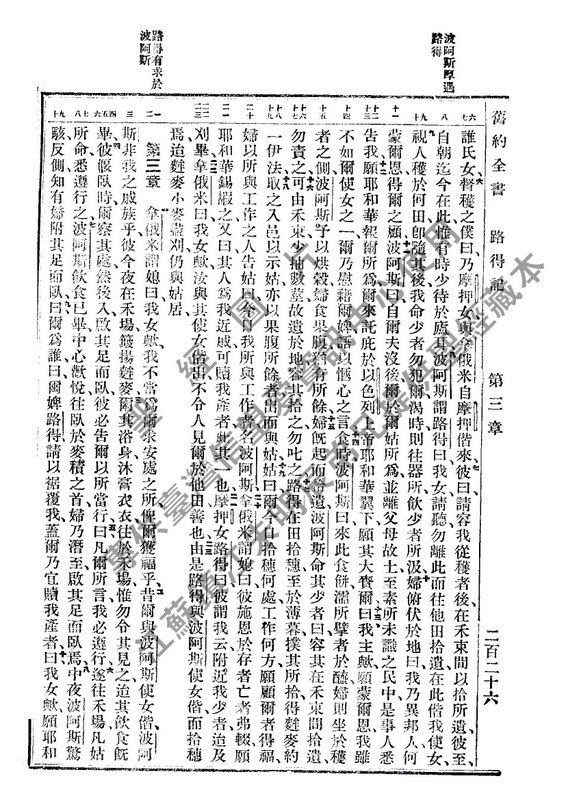 波阿斯厚遇路得
路得有求於波阿斯
舊約全書 路得記 第三章 二百二十六
誰氏女、督穫之僕曰、乃摩押女、與拿俄米自摩押偕來、彼曰、請容我從穫者後、在禾束間以拾所遺、彼至、
自朝迄今在此、惟有時少待於廬耳、波阿斯謂路得曰、我女請聽、勿離此而往他田拾遺、在此偕我使女、
視人穫於何田、卽隨其後、我命少者勿犯爾、渴時則往器所、飲少者所汲、婦俯伏於地曰、我乃異邦人、何
蒙爾恩、得爾之顧、波阿斯曰、自爾夫沒後、爾於爾姑所爲、並離父母故土、至素所未識之民中、是事人悉
告我、願耶和華報爾所爲、爾來託庇於以色列上帝耶和華翼下、願其大賚爾、曰、我主歟、願蒙爾恩、我雖
不如爾使女之一、爾乃慰藉爾婢、語以愜心之言、食時波阿斯曰、來此食餅、濡所擘者於醯、婦則坐於穫
者之側、波阿斯予以烘穀、婦食果腹、猶有所餘、婦旣起而拾遺、波阿斯命其少者曰、容其在禾束間拾遺、
勿責之、可由禾束少抽數莖、故遺於地、容其拾之、勿叱之、路得在田拾穗、至於薄暮、撲其所拾、得麰麥約
一伊法、取之入邑、以示姑、亦以果腹所餘者、出而與姑、姑曰、爾今日拾穗何處、工作何方、願顧爾者得福、
婦以所與工作之人告姑曰、今日我所與工作者、名波阿斯、拿俄米謂媳曰、彼施恩於存者亡者弗輟、願
耶和華錫嘏之、又曰、其人爲我近戚、可贖我產者、此其一也、摩押女路得曰、彼謂我云、附近我少者、迨及
刈畢、拿俄米曰、我女歟、汝與其使女偕出、不令人見爾於他田、善也、由是路得與波阿斯使女偕而拾穗
焉、迨麰麥小麥盡刈、仍與姑居
第三章 拿俄米謂媳曰、我女歟、我不當爲爾求安處之所、俾爾獲福乎、昔爾與波阿斯使女偕、波阿
斯非我之戚族乎、彼今夜在禾場簸揚麰麥、爾其浴身沐膏、衣衣往於禾場、惟勿令其見之、迨其飲食旣
畢、彼偃臥時、爾察其處、然後入、啟其足而臥、彼必告爾以所當行、曰、凡爾所言、我必遵行、遂往禾場、凡姑
所命、悉遵行之、波阿斯飲食已畢、中心歡悅、往臥於麥積之首、婦乃潛至、啟其足而臥焉、中夜波阿斯驚
駭反側、知有婦附其足而臥、曰、爾爲誰、曰、爾婢路得、請以裾覆我、蓋爾乃宜贖我產者、曰、我女歟、願耶和